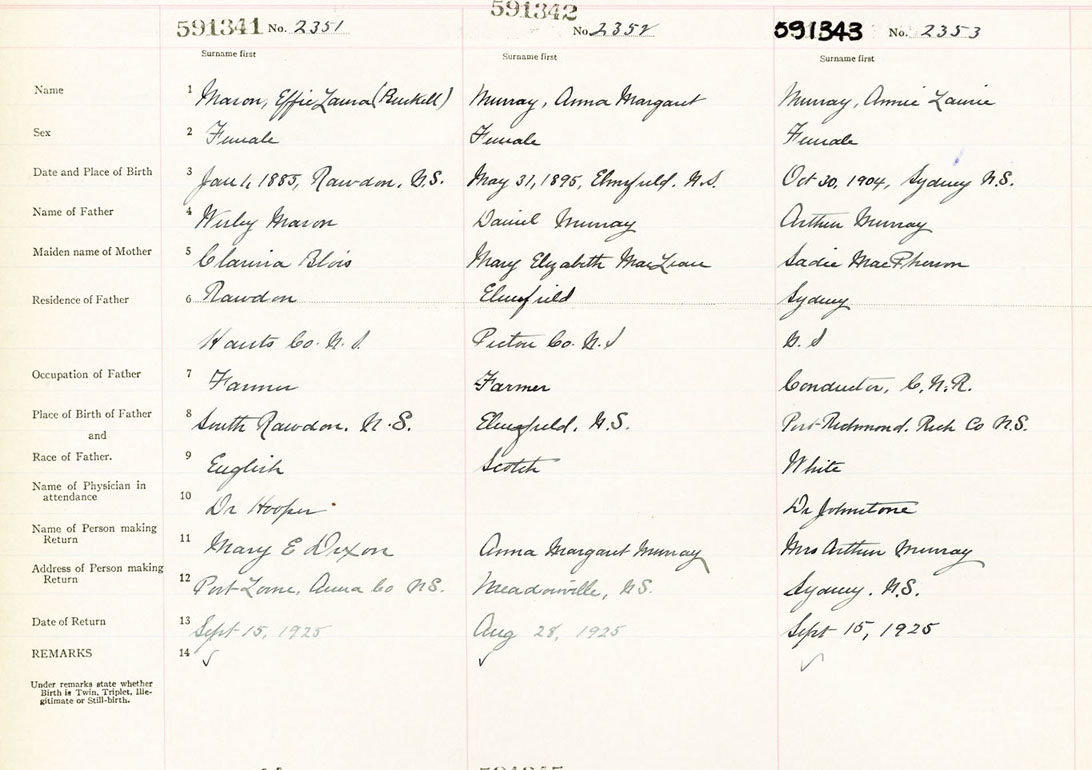 591341 No. 2351 591342 No. 2352 591343 No. 2353
Surname first Surname first Surname first
Name 1 Mason, Effie Laura (Buskell) Murray, Anna Margaret Murray, Annie Laurie
Sex 2 Female Female Female
Date and Place of Birth 3 Jan 1, 1885, Rawdon, N.S. May 31, 1895, Elmsfield, N.S. Oct 30, 1904, Sydney N.S.
Name of Father 4 Wesley Mason Daniel Murray Arthur Murray
Maiden name of Mother 5 Clarina Blois Mary Elizabeth MacLean Sadie MacPherson
Residence of Father 6 Rawdon Elmsfield Sydney
Hants Co. N.S Pictou Co. N.S N.S
Occupation of Father 7 Farmer Farmer Conductor, C.N.R.
Place of Birth of Father 8 South Rawdon, N.S. Elmsfield, N.S. Port Richmond, Rich Co N.S.
and
Race of Father. 9 English Scotch White
Name of Physician in
attendance 10 Dr Hooper Dr Johnstone
Name of Person making
Return 11 Mary E Dixon Anna Margaret Murray Mrs Arthur Murray
Address of Person making
Return 12 Port Lorne, Anna Co N.S. Meadowville, N.S. Sydney, N.S.
Date of Return 13 Sept 15, 1925 Aug 28, 1925 Sept 15, 1925
REMARKS 14
Under remarks state whether
Birth is Twin, Triplet, Ille-
gitimate or Still-birth.